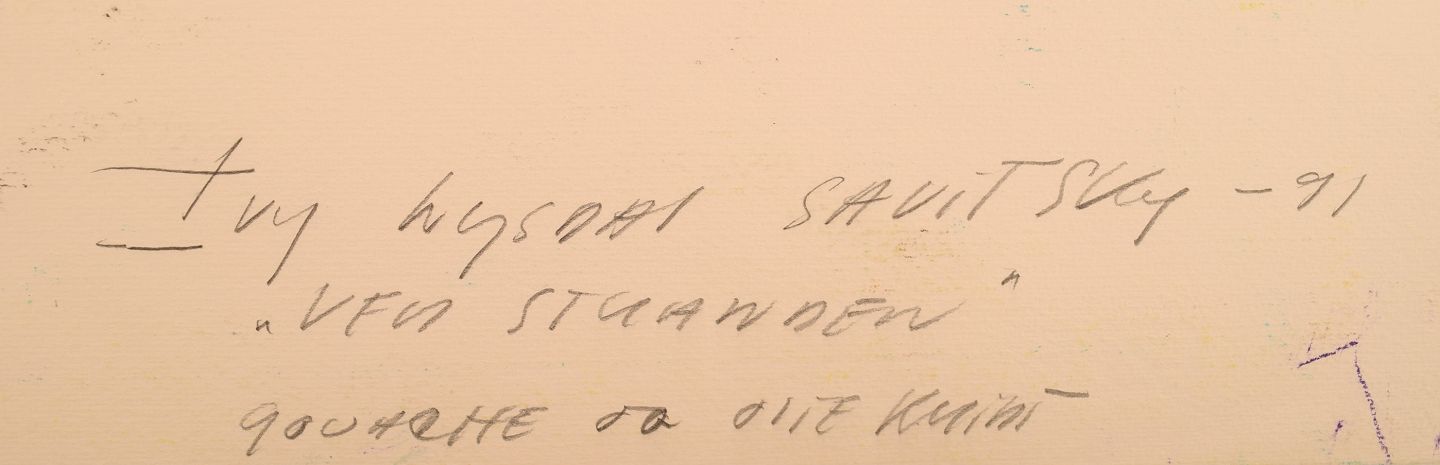 Ivy Lysdal SAVITSKY - 91
"VED STRANDEN"
gOUACHE OG OLIE KRIDT